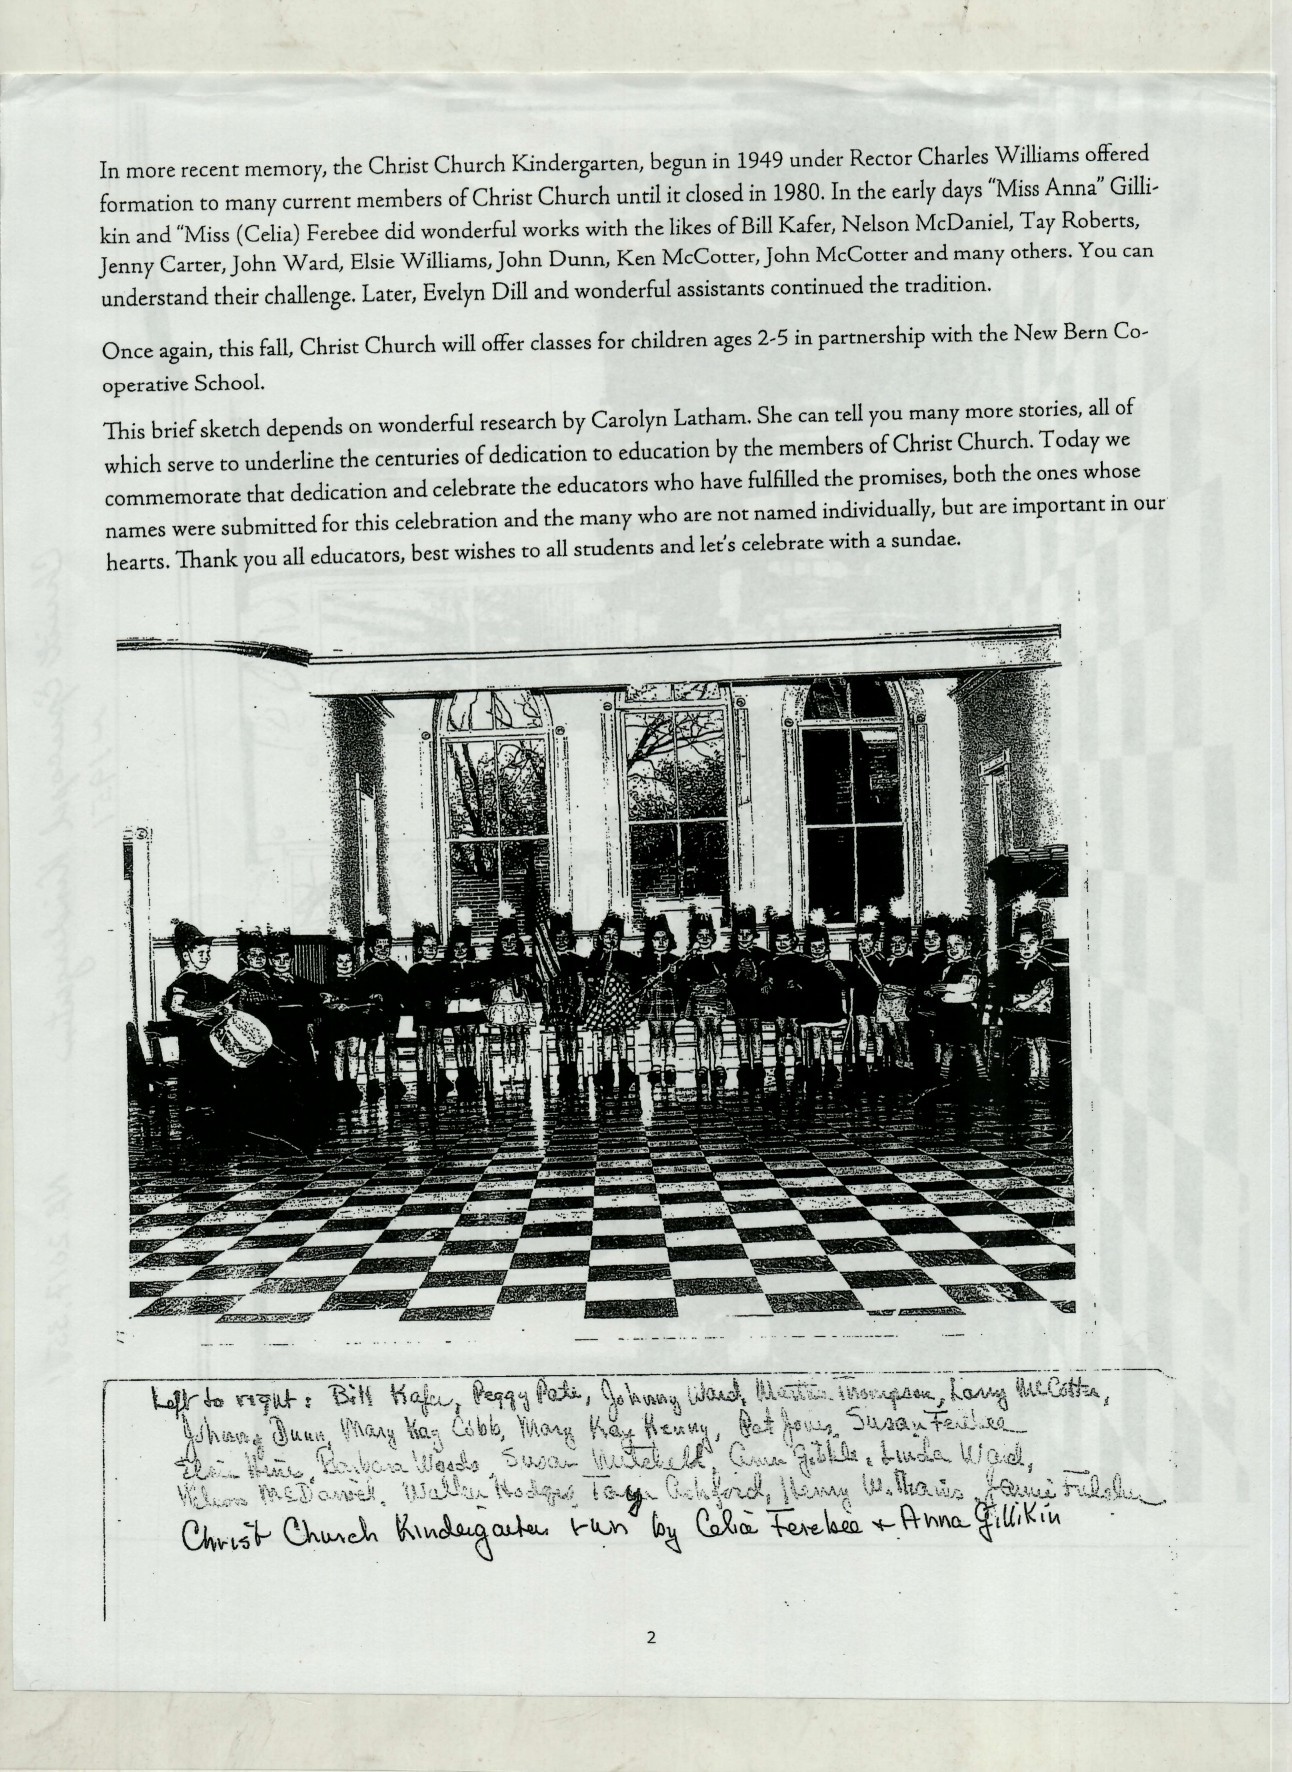 In more recent memory, the Christ Church Kindergarten, begun in 1949 under Rector Charles Williams offered
formation to many current members of Christ Church until it closed in 1980. In the early days “Miss Anna” Gilli-
kin and “Miss (Celia) Ferebee did wonderful works with the likes of Bill Kafer, Nelson McDaniel, Tay Roberts,
Jenny Carter, John Ward, Elsie Williams, John Dunn, Ken McCotter, John McCotter and many others. You can
understand their challenge. Later, Evelyn Dill and wonderful assistants continued the tradition.
Once again, this fall, Christ Church will offer classes for children ages 2-5 in partnership with the New Bern Co-
operative School.
This brief sketch depends on wonderful research by Carolyn Latham. She can tell you many more stories, all of
which serve to underline the centuries of dedication to education by the members of Christ Church. Today we
commemorate that dedication and celebrate the educators who have fulfilled the promises, both the ones whose
names were submitted for this celebration and the many who are not named individually, but are important in our
hearts. Thank you all educators, best wishes to all students and let's celebrate with a sundae.
Left to right: Bill Kafer, Peggy Pate, Johnny Ward, Thompson, Larry McCotter,
Johnny Dunn, Mary Kay Cobb, Mary Kay Henny, Pat Jones, Susan Ferebee
Barbara Woods, Susan Mitchell, Ann Linda Ward,
Nelson McDaniel, Walker Hodges, Ashford, Henry Williams, Fulcher
Christ Church Kindergarten run by Celia Ferebee + Anna Gillikin
2